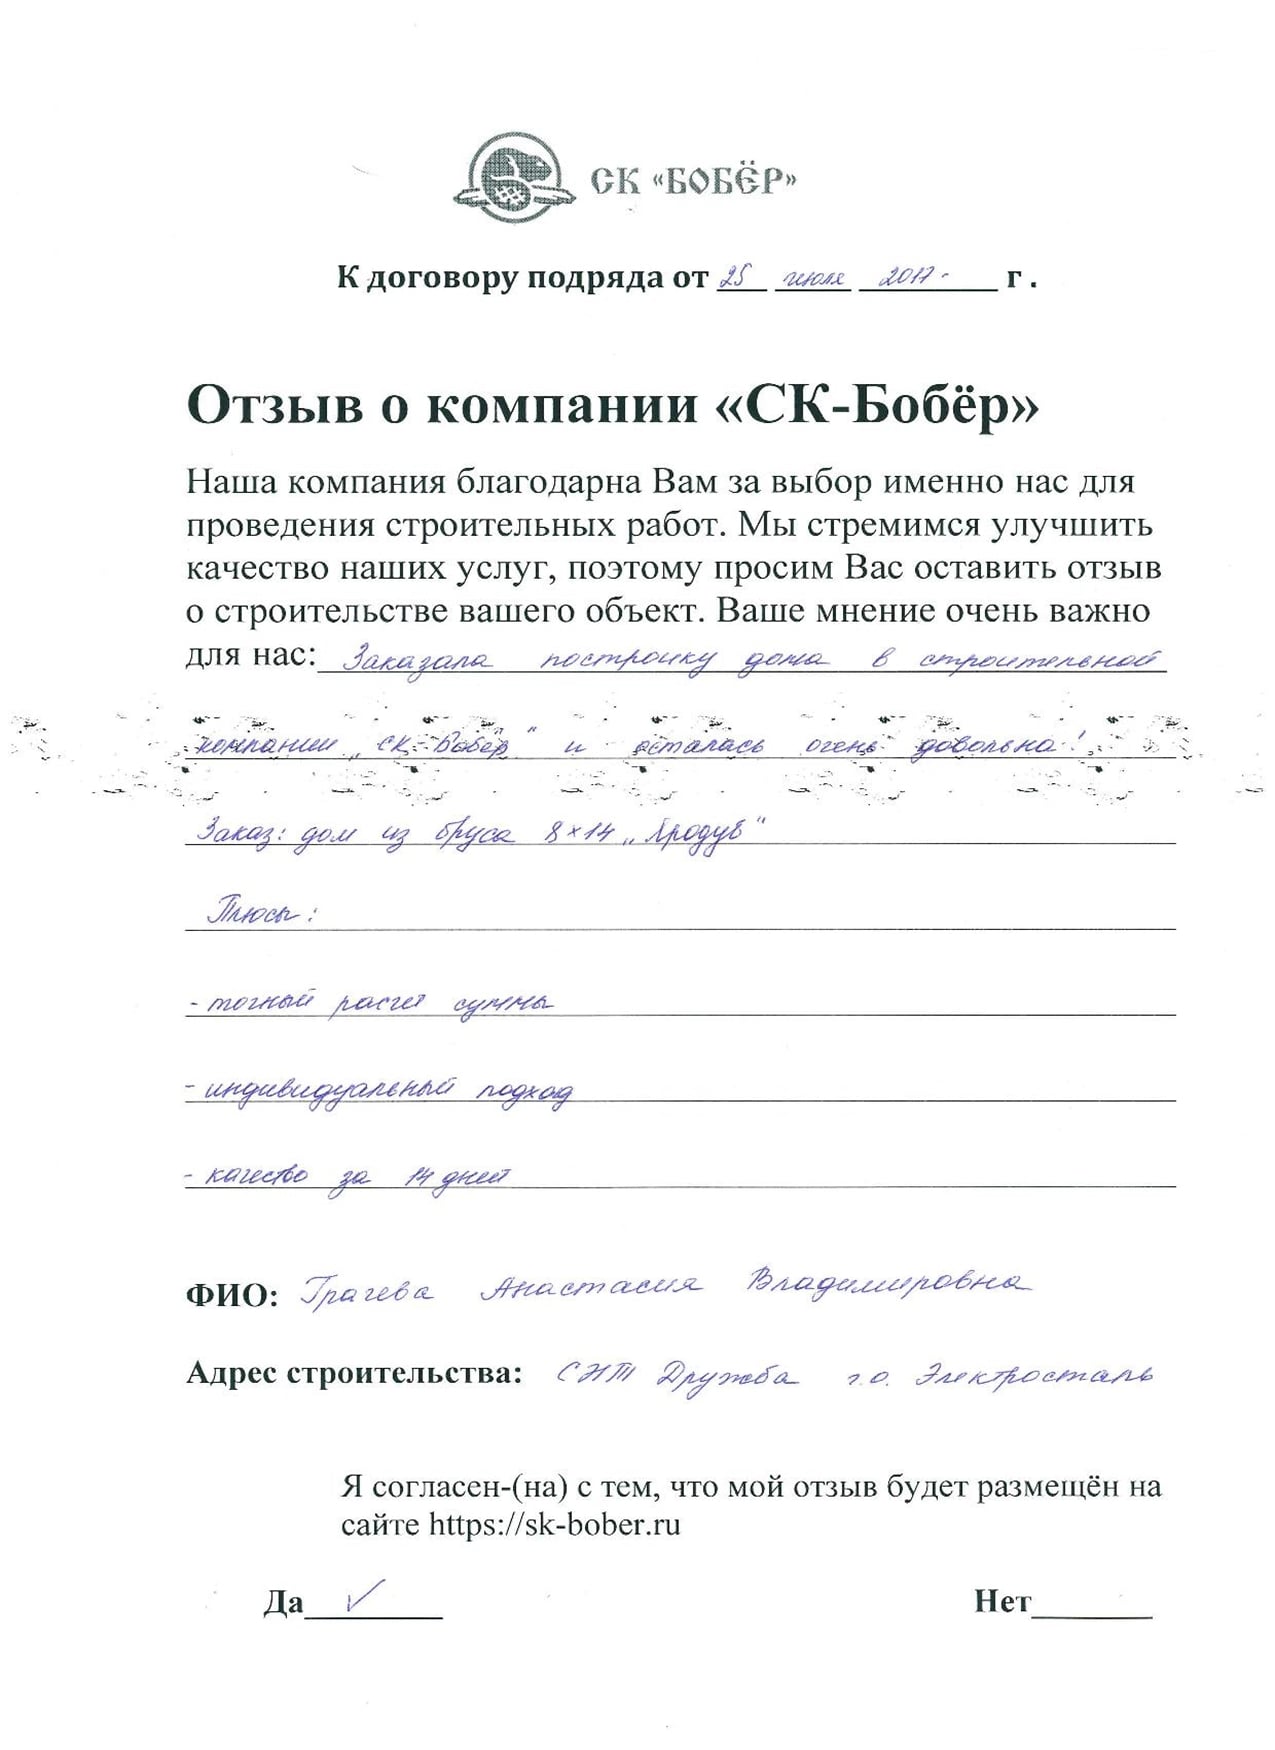 СК «БОБЁР»
К договору подряда от 25 июля 2017 г .
Отзыв о компании «СК-Бобёр»
Наша компания благодарна Вам за выбор именно нас для
проведения строительных работ. Мы стремимся улучшить
качество наших услуг, поэтому просим Вас оставить отзыв
о строительстве вашего объект. Ваше мнение очень важно
для нас: Заказала постройку дома в строительной
компании „СК-Бобёр" и осталась очень довольна!
Заказ: дом из бруса 8×14 „Яродуб"
Плюсы:
- точный расчёт суммы
- индивидуальный подход
- качество за 14 дней
ФИО: Грачева Анастасия Владимировна
Адрес строительства: СНТ Дружба г.о. Электросталь
Я согласен-(на) с тем, что мой отзыв будет размещён на
сайте https://sk-bober.ru
Да ✓ Нет